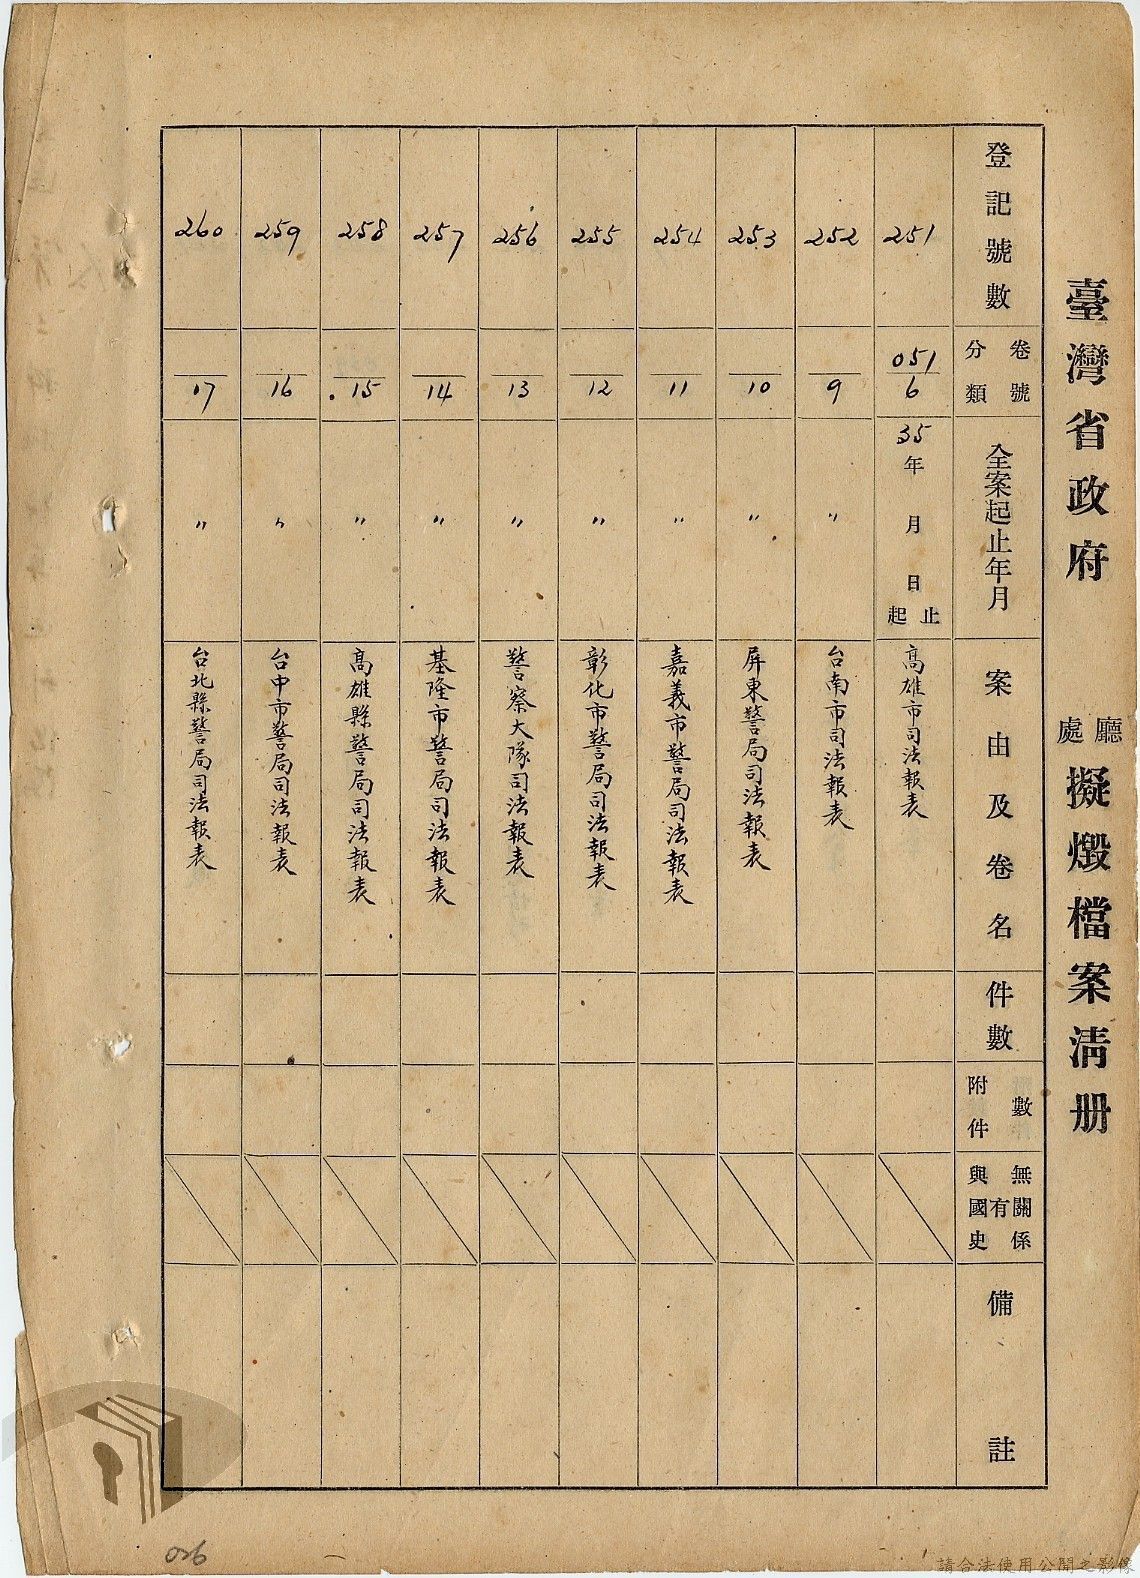 臺灣省政府 廳處 擬燬檔案清册
登記號數
卷號分類
全案起止年月
案由及卷名
件數
附件數
與國史有無關係
備註
251
051/6
35年 月 日起止
高雄市司法報表
252
9
〃
台南市司法報表
253
10
〃
屏東警局司法報表
254
11
〃
嘉義市警局司法報表
255
12
〃
彰化市警局司法報表
256
13
〃
警察大隊司法報表
257
14
〃
基隆市警局司法報表
258
15
〃
高雄縣警局司法報表
259
16
〃
台中市警局司法報表
260
17
〃
台北縣警局司法報表
026
請合法使用公開之影像